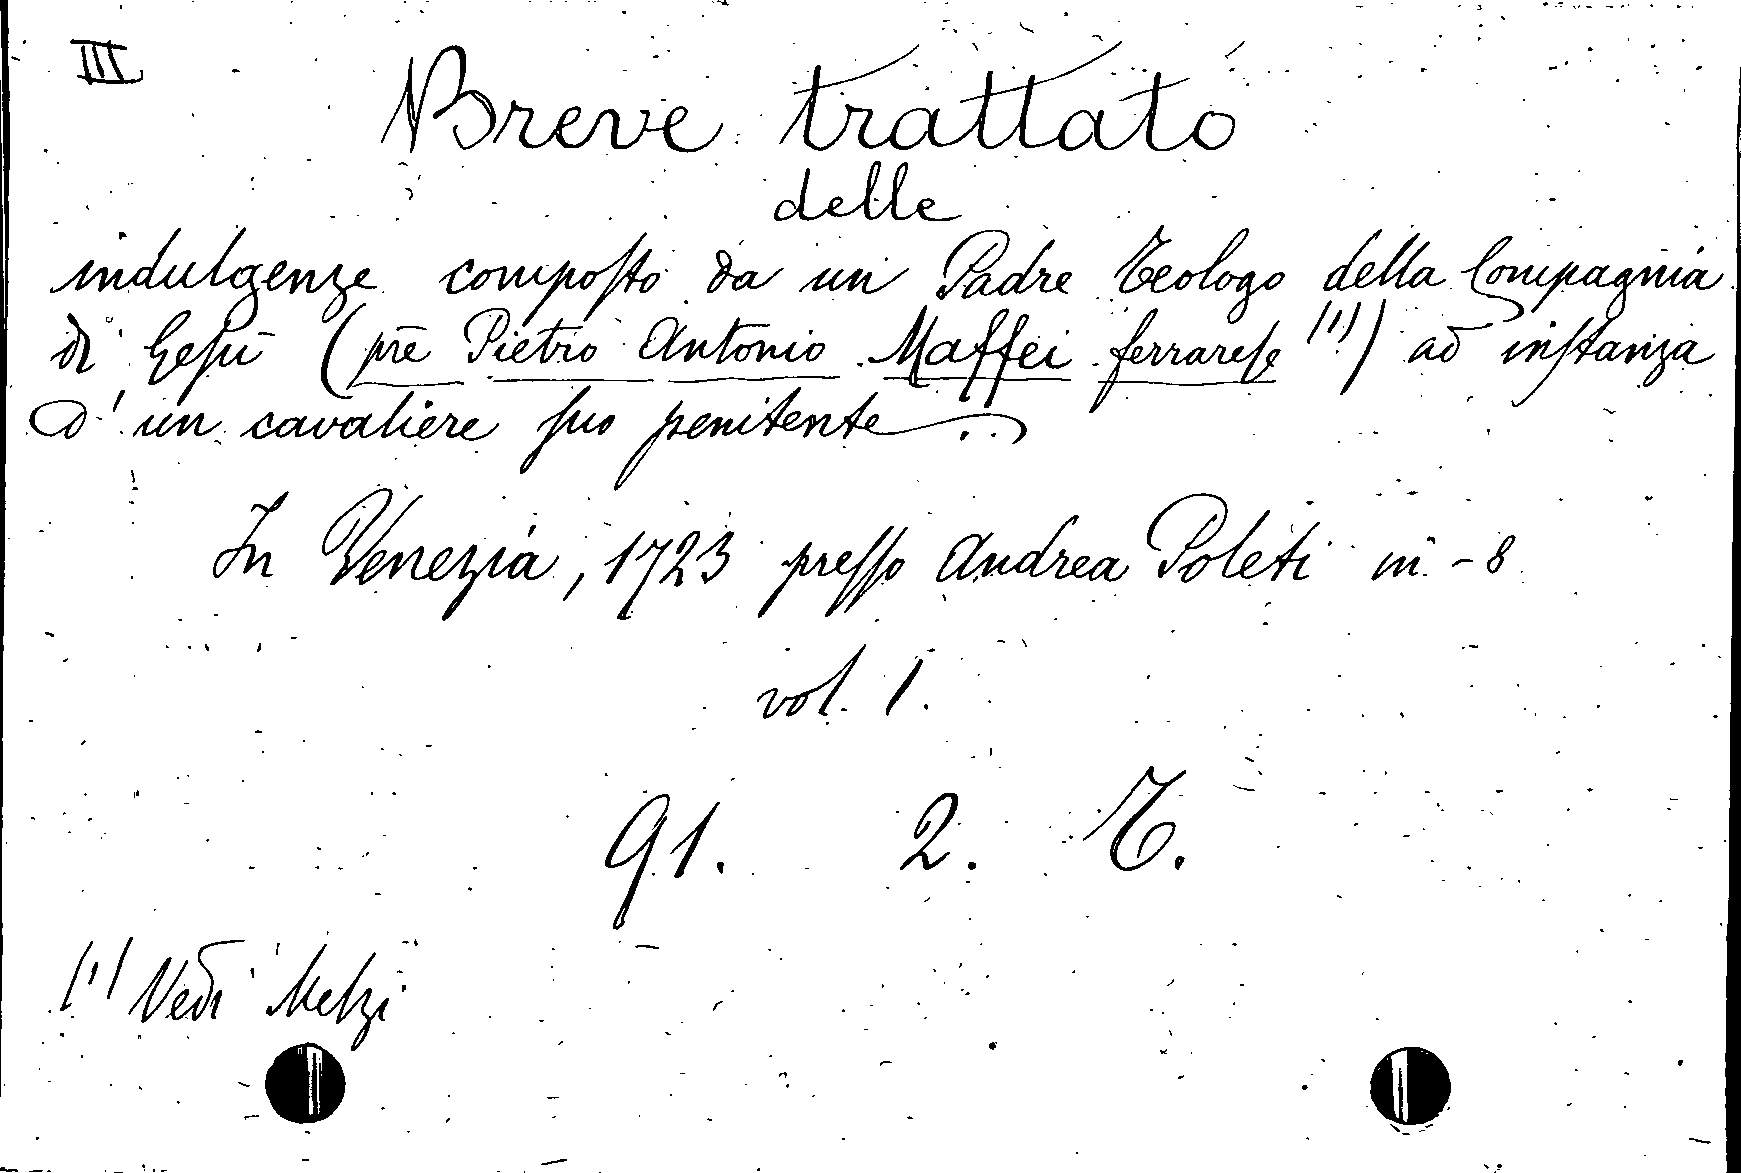 III
Breve trattato
delle
indulgenze composto da un Padre Teologo della Compagnia
di Gesù (pre Pietro Antonio Maffei ferrarese (1)) ad instanza
d'un cavaliere suo penitente ..
In Venezia, 1723 presso Andrea Poleti in - 8
vol. 1.
91. 2. T.
(1) Vedi Melzi